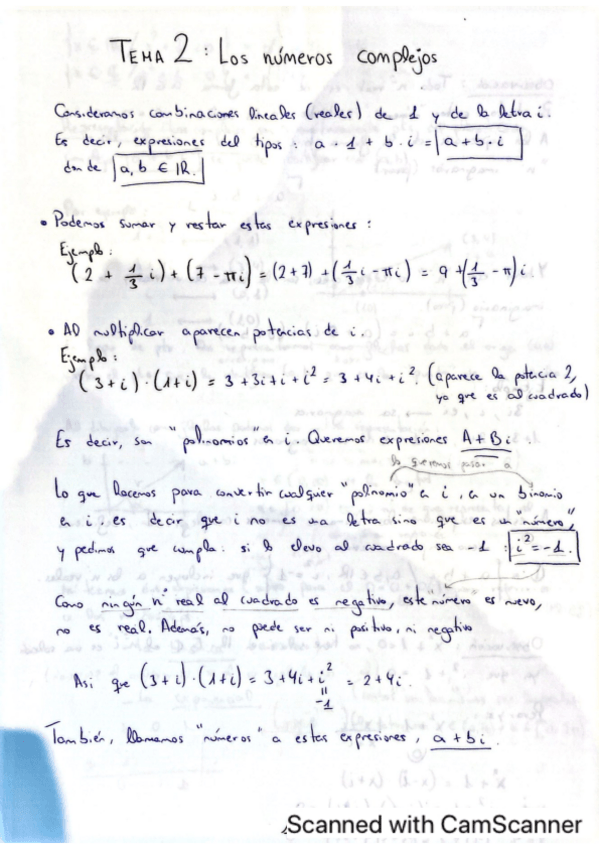 TEMA 2 : Los números complejos
Consideramos combinaciones lineales (reales) de 1 y de la letra i.
Es decir, expresiones del tipos : a · 1 + b · i = a + b · i
donde a, b ∈ IR.
• Podemos sumar y restar estas expresiones :
Ejemplo :
(2 + 1/3 i) + (7 - πi) = (2+7) + (1/3 i - πi) = 9 + (1/3 - π) i.
• Al multiplicar aparecen potencias de i.
Ejemplo :
(3+i) · (1+i) = 3 + 3i + i + i² = 3 + 4i + i². (aparece la potencia 2,
ya que es al cuadrado)
Es decir, son "polinomios" en i. Queremos expresiones A + B i.
lo queremos pasar a
Lo que hacemos para convertir cualquier "polinomio" en i, en un binomio
en i, es decir que i no es una letra sino que es un número,
y pedimos que cumpla: si lo elevo al cuadrado sea -1 : i² = -1.
Como ningún nº real al cuadrado es negativo, este número es nuevo,
no es real. Además, no puede ser ni positivo, ni negativo
Asi que (3+i) · (1+i) = 3 + 4i + i² = 2 + 4i.
=
-1
También, llamamos "números" a estas expresiones, a + b i.
Scanned with CamScanner